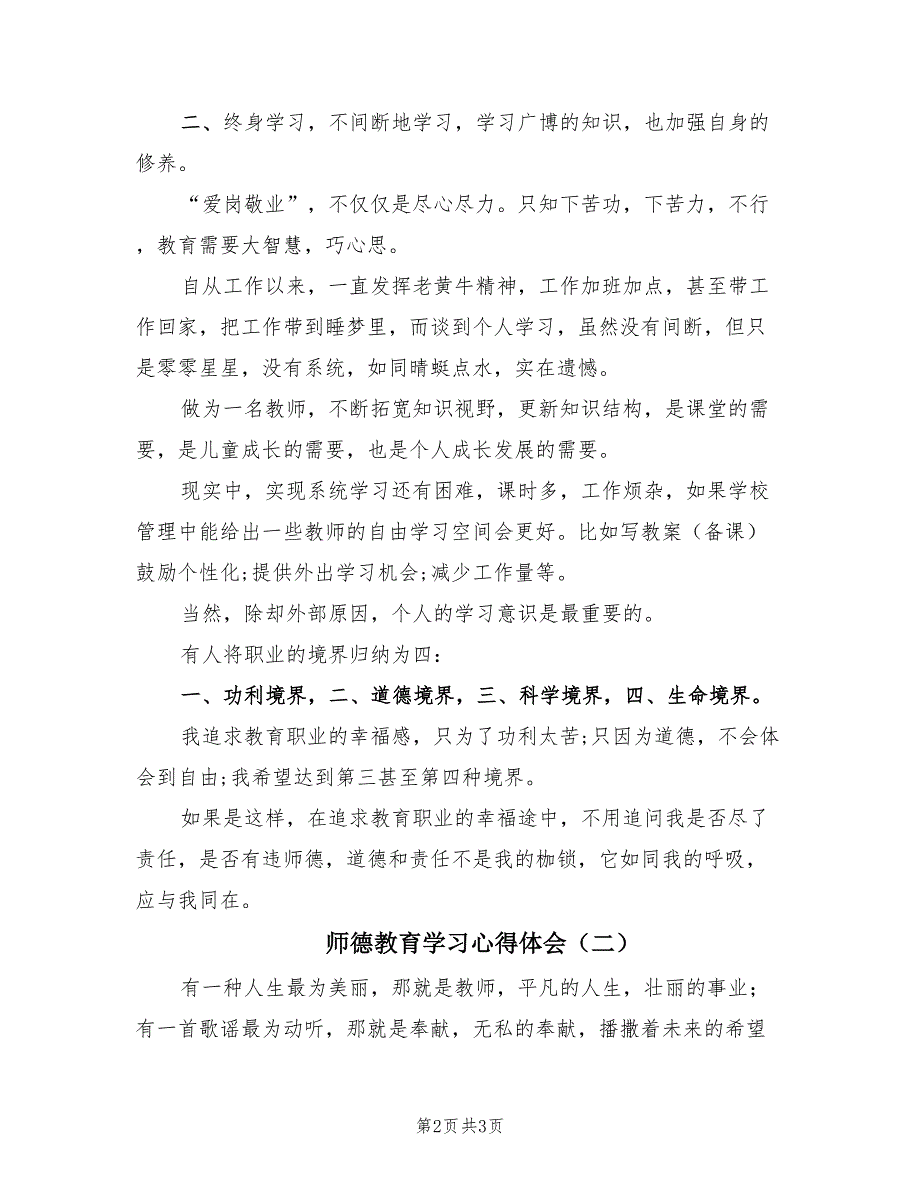 二、终身学习，不间断地学习，学习广博的知识，也加强自身的
修养。
“爱岗敬业”，不仅仅是尽心尽力。只知下苦功，下苦力，不行
，教育需要大智慧，巧心思。
自从工作以来，一直发挥老黄牛精神，工作加班加点，甚至带工
作回家，把工作带到睡梦里，而谈到个人学习，虽然没有间断，但只
是零零星星，没有系统，如同晴蜓点水，实在遗憾。
做为一名教师，不断拓宽知识视野，更新知识结构，是课堂的需
要，是儿童成长的需要，也是个人成长发展的需要。
现实中，实现系统学习还有困难，课时多，工作烦杂，如果学校
管理中能给出一些教师的自由学习空间会更好。比如写教案（备课）
鼓励个性化;提供外出学习机会;减少工作量等。
当然，除却外部原因，个人的学习意识是最重要的。
有人将职业的境界归纳为四：
一、功利境界，二、道德境界，三、科学境界，四、生命境界。
我追求教育职业的幸福感，只为了功利太苦;只因为道德，不会体
会到自由;我希望达到第三甚至第四种境界。
如果是这样，在追求教育职业的幸福途中，不用追问我是否尽了
责任，是否有违师德，道德和责任不是我的枷锁，它如同我的呼吸，
应与我同在。
师德教育学习心得体会（二）
有一种人生最为美丽，那就是教师，平凡的人生，壮丽的事业；
有一首歌谣最为动听，那就是奉献，无私的奉献，播撒着未来的希望
第2页共3页